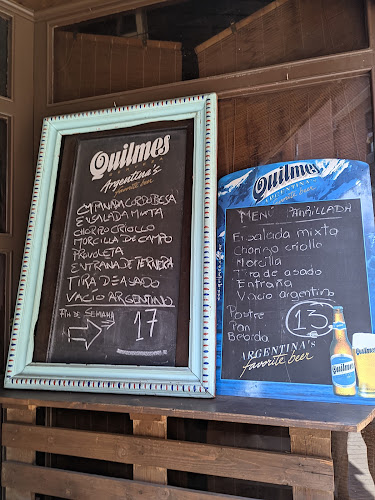 Quilmes
Argentina's
favorite beer
EMPANADA CORDOBESA
ENSALADA MIXTA
CHORIZO CRIOLLO
MORCILLA DE CAMPO
PROVOLETA
ENTRAÑA DE TERNERA
TIRA DE ASADO
VACIO ARGENTINO
FIN DE SEMANA
17
Quilmes
ARGENTINA'S
favorite beer
MENÚ PARRILLADA
Ensalada mixta
Chorizo criollo
Morcilla
Tira de asado
Entraña
Vacio argentino
Postre
Pan
Bebida
13
ARGENTINA'S
favorite beer
Quilmes
Quilmes